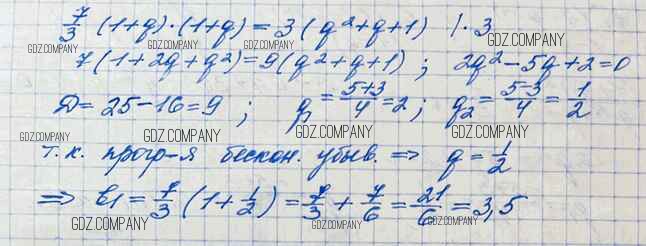 7/3 (1+q)·(1+q) = 3(q²+q+1) |·3
GDZ.COMPANY GDZ.COMPANY GDZ.COMPANY
7(1+2q+q²)=9(q²+q+1) ; 2q²−5q+2=0
GDZ.COMPANY GDZ.COMPANY GDZ.COMPANY
Д=25−16=9 ; q₁=(5+3)/4=2 ; q₂=(5−3)/4=1/2
GDZ.COMPANY GDZ.COMPANY GDZ.COMPANY
т.к. прогр-я бескон. убыв. ⇒ q=1/2
⇒ b₁=7/3(1+1/2)=7/3+7/6=21/6=3,5
GDZ.COMPANY GDZ.COMPANY GDZ.COMPANY